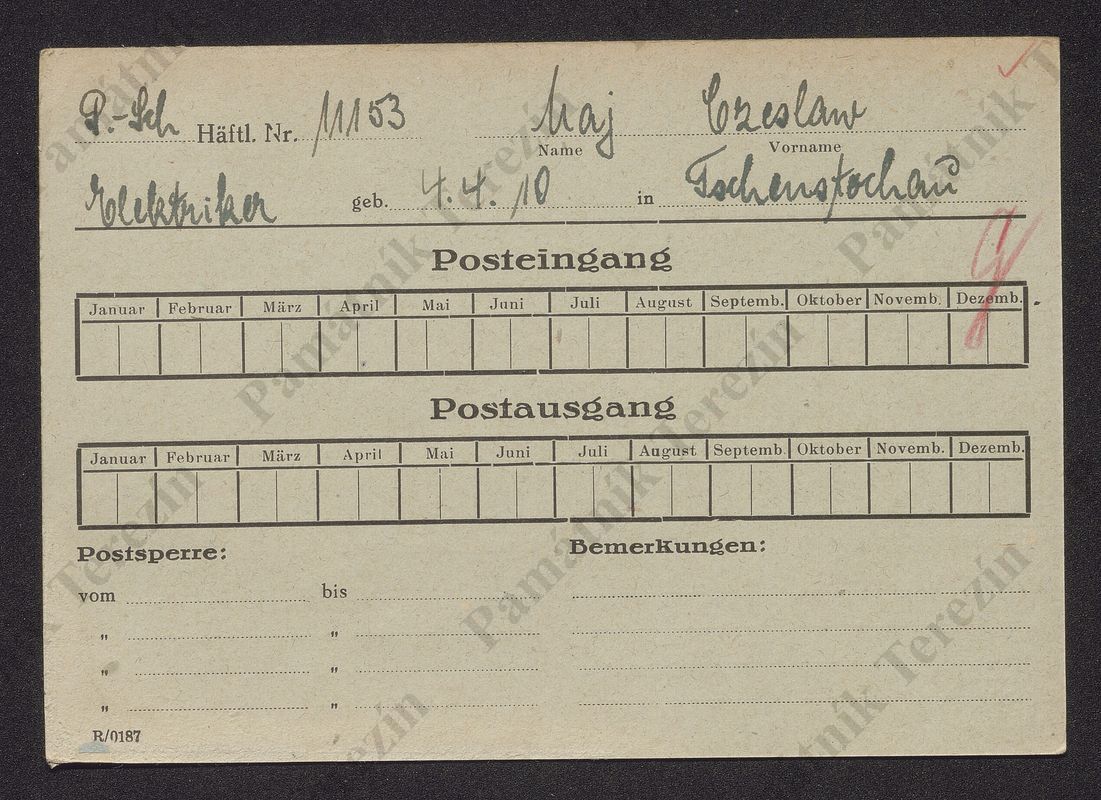 P.-Sch Häftl. Nr. 11153 Maj Czeslaw
Name Vorname
Elektriker geb. 4.4.10 in Tschenstochau
Posteingang
Januar Februar März April Mai Juni Juli August Septemb. Oktober Novemb. Dezemb.
Postausgang
Januar Februar März April Mai Juni Juli August Septemb. Oktober Novemb. Dezemb.
Postsperre: Bemerkungen:
vom bis
" "
" "
" "
R/0187
Památník Terezín